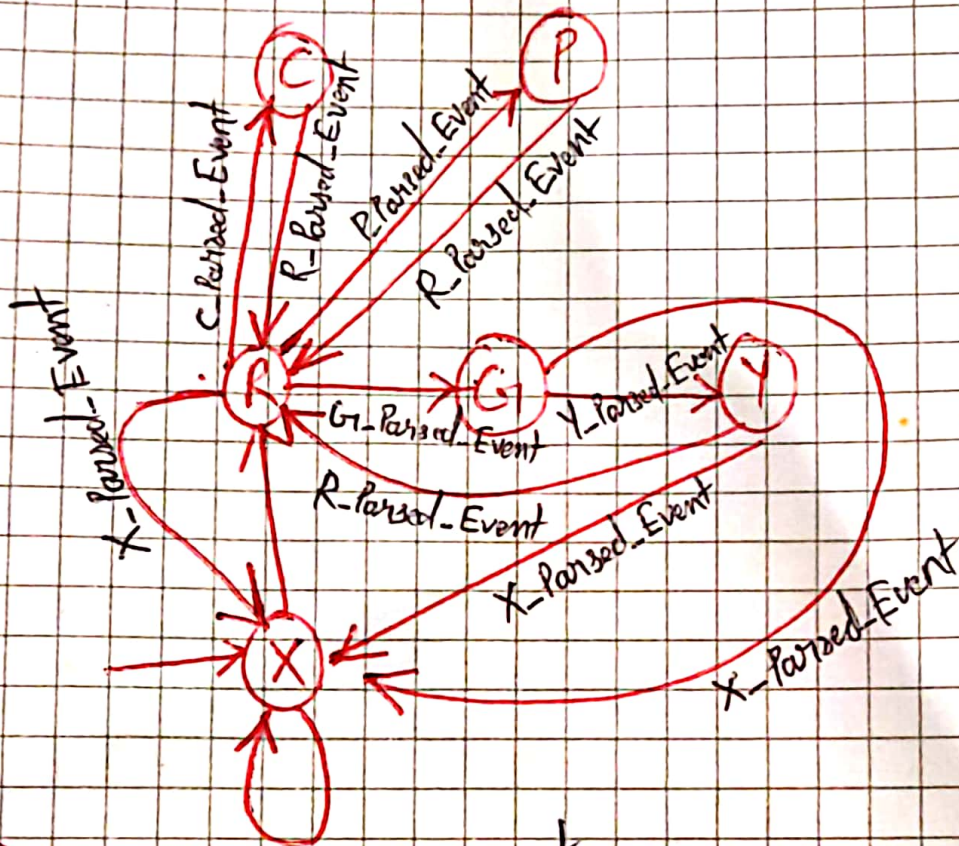 C
P
C_Parsed_Event
R_Parsed_Event
P_Parsed_Event
R_Parsed_Event
X_Parsed_Event
R
G
Y_Parsed_Event
Y
G_Parsed_Event
R_Parsed_Event
X_Parsed_Event
X_Parsed_Event
X